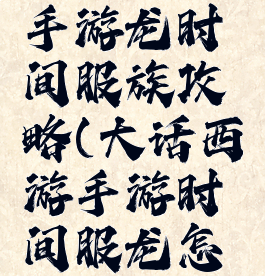 手游龙时
间服族攻
略(大话西
游手游时
间服龙怎